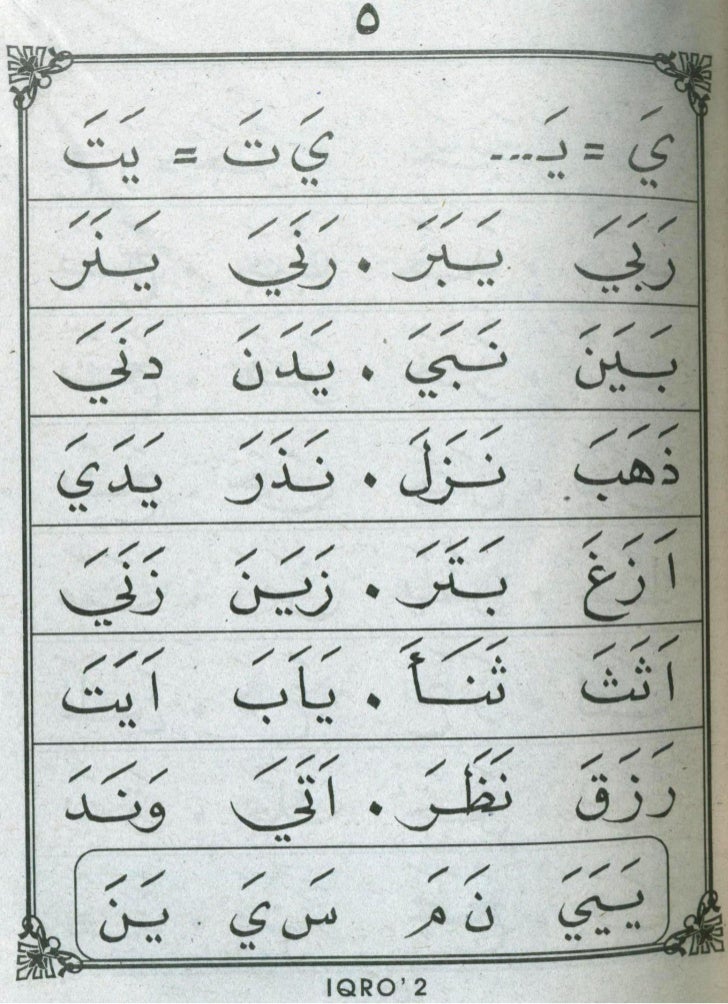 ٥
يَ = يَـ... يَ تَ = يَتَ
رَبَيَ يَبَرَ . رَنَيَ يَنَرَ
بَيَنَ نَبَيَ . يَدَنَ دَنَيَ
ذَهَبَ نَزَلَ . نَذَرَ يَدَيَ
اَزَغَ بَتَرَ . زَيَنَ زَنَيَ
اَثَثَ ثَنَأَ . يَاَبَ اَيَتَ
رَزَقَ نَظَرَ . اَتَيَ وَنَدَ
يَيَيَ نَ مَ سَ يَ يَنَ
IQRO' 2